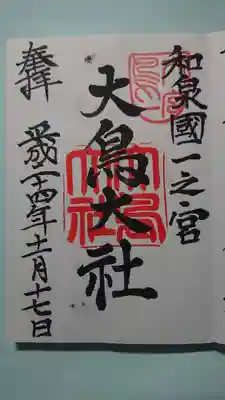 和泉國一之宮
大鳥大社
大鳥
大社
奉拝
平成二十四年十一月十七日